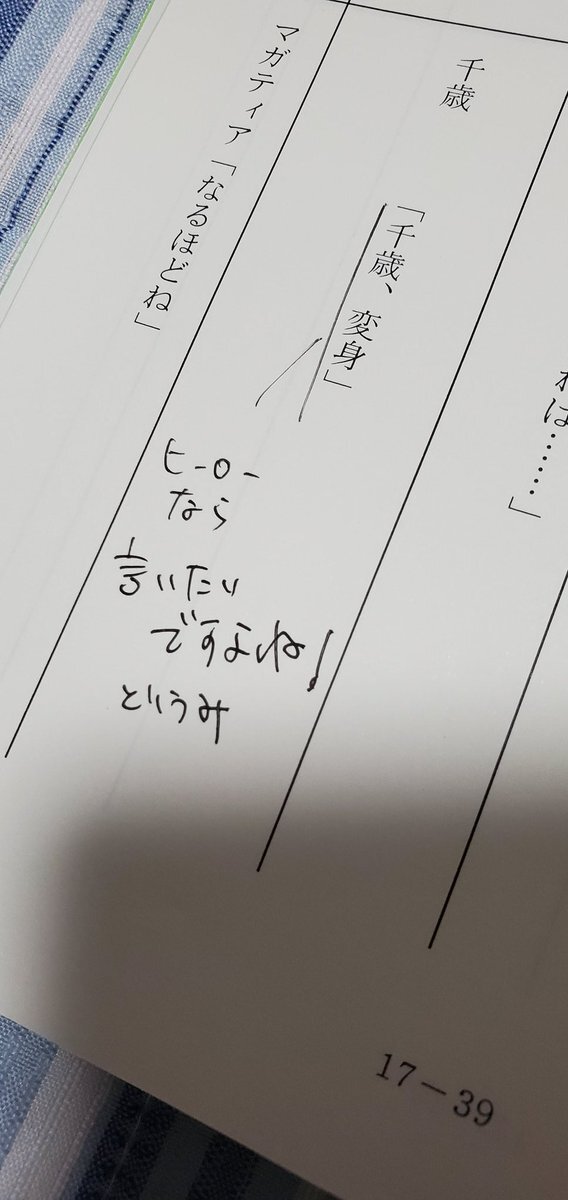 れは……」
千歳　「千歳、変身」
マガティア「なるほどね」
ヒーロー
なら
言いたい
ですよね！
というみ
17－39